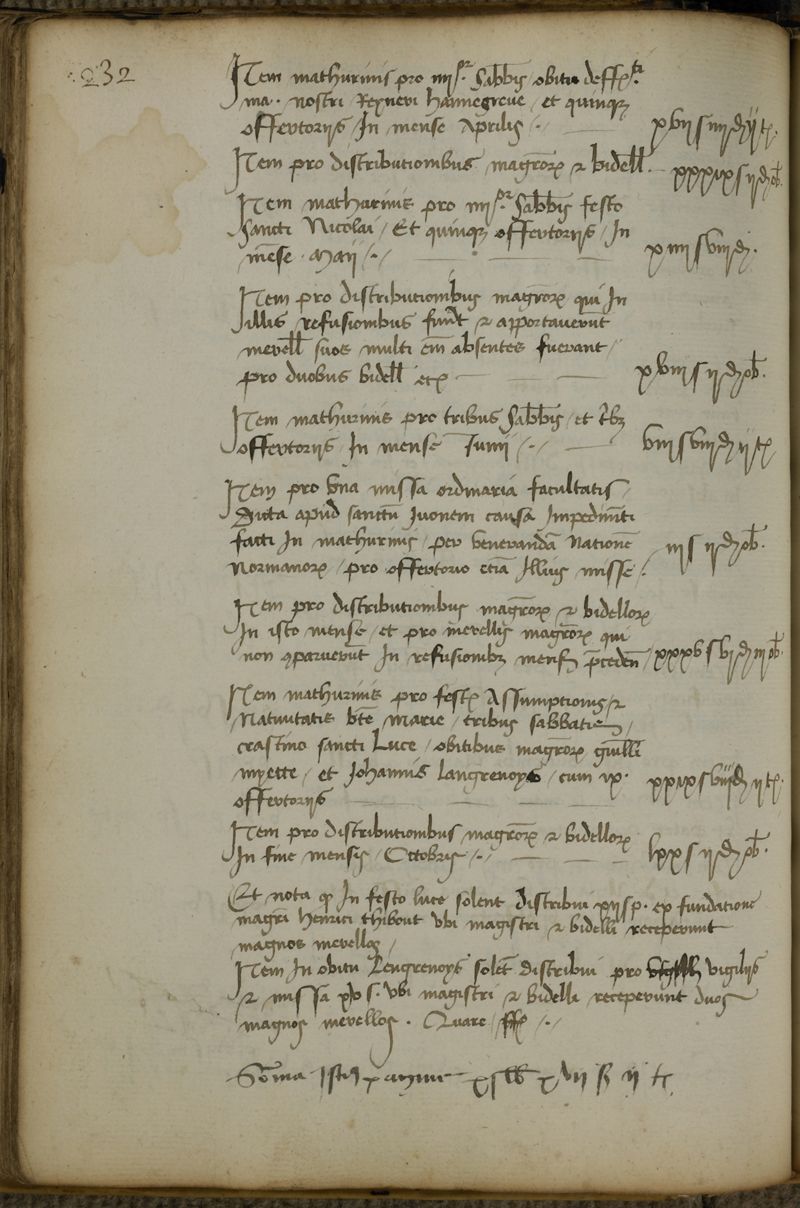 232
Item mathurinis pro iiiior sabbis obitu deff
ma. nostri Reyneri hannegreve / et quinqz
offertoriis / In mense Aprilis /./ xvii s iiii d ii t.
Item pro distributionibus magrorz z bidell xxxix s ii d ob.
Item mathurinis pro iiiior sabbis festo
sancti Nicolai / Et quinqz offertoriis / In
mense Maii /./ xiiii s viii d.
Item pro distributionibus magrorz qui In
illis refusionibus fuerut z apportaverut
merell suos multi em absentes fuerant /
pro duobus bidell etc xviii s ii d ob.
Item mathurinis pro tribus sabbis / et tbz
offertoriis In mense Junii /./ viii s viii d ii t
Item pro una missa ordinaria facultatis /
dicta apud sanctu Ivonem causa Impedimeti
facti In mathurinis / per venerandam Natione
Normanorz / pro offertorio etia Illius misse. iii s ii d ob.
Item pro distributionibus magrorz z bidellorz
In isto mense / et pro merellis magrorz qui
non coparuerut In refusionibz mens preceden xxxv s vi d ob.
Item mathurinis pro festis Assumptionis z
Nativitatis bte Marie / tribus sabbatis /
crastino sancti Luce / obitibus magrorz guilli
myette / et Johannis Langrenoys / cum ix.
offertoriis xxix s viii d ii t.
Item pro distributionibus magrorz z bidellorz
In fine mensis Octobris /./ lxx s ii d ob.
Et nota q In festo luce solent distribui s p. ex fundatione
magri henrici thibout ubi magistri z bidelli receperunt
magnos merellos /
Item In obitu Lengrenoys solet distribui pro vigiliis
z missa s. ubi magistri z bidelli receperunt duos
magnos merellos. Quare /./
Soma Isti